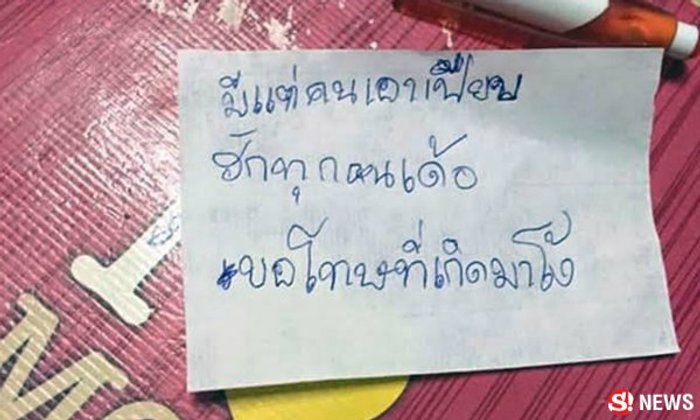 มีแต่คนเอาเปียบ
ฮักทุกคนเด้อ
ขอโทษที่เกิดมาโง้
I
MO
S! NEWS